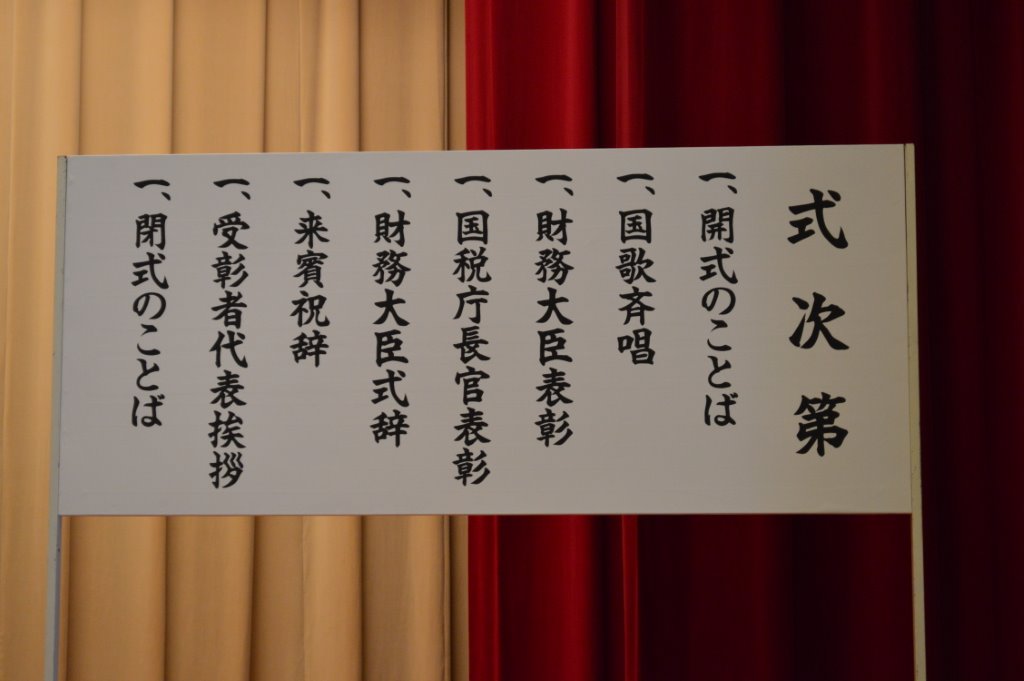 式次第
一、開式のことば
一、国歌斉唱
一、財務大臣表彰
一、国税庁長官表彰
一、財務大臣式辞
一、来賓祝辞
一、受彰者代表挨拶
一、閉式のことば